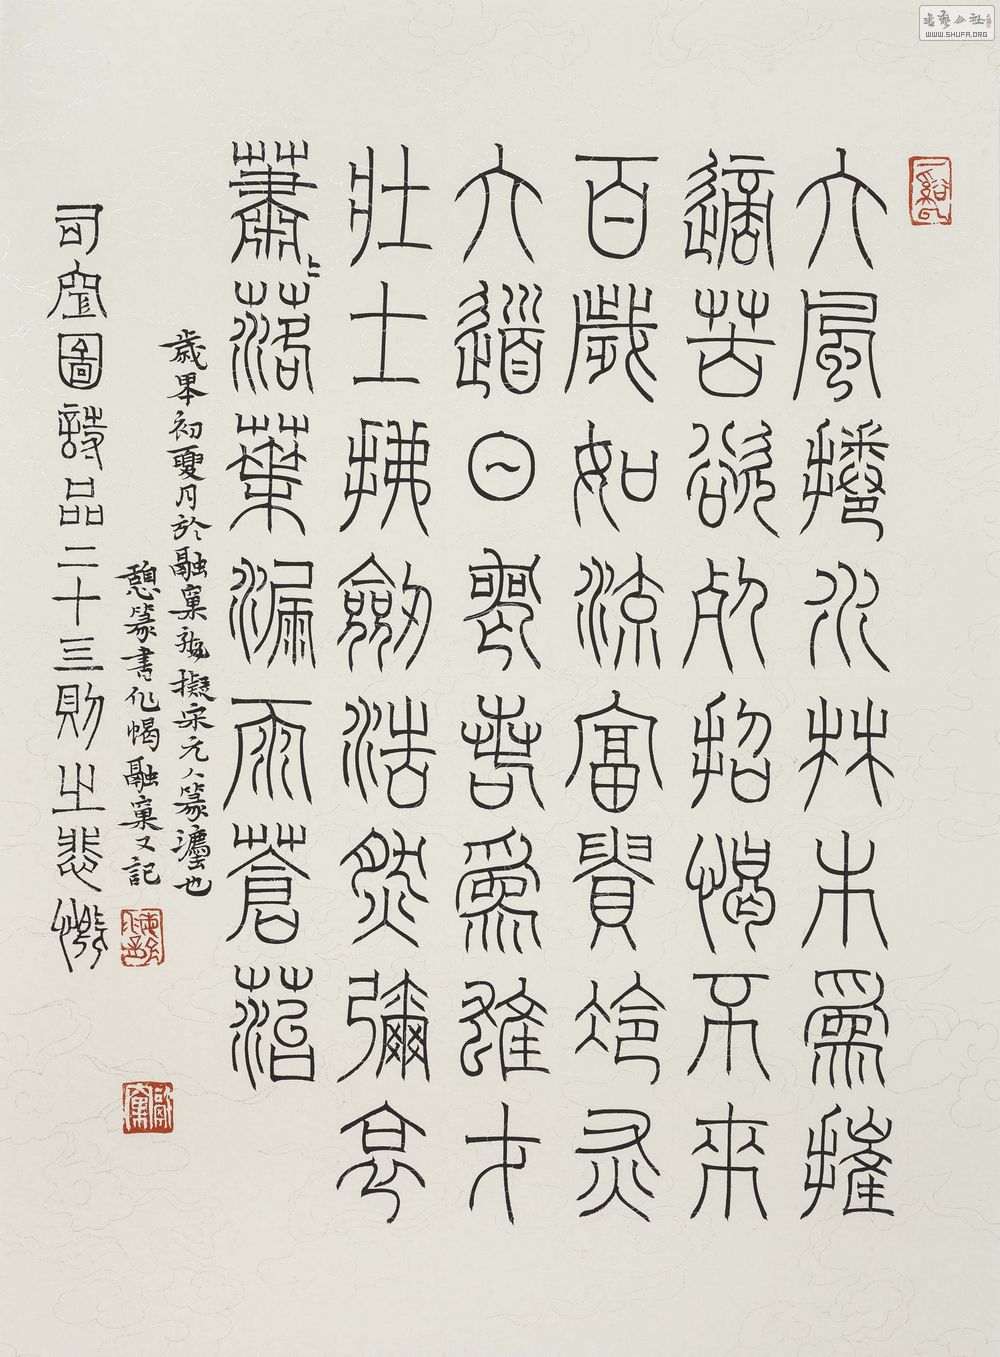 大風捲水林木爲摧
適苦欲死招愒不來
百歲如流富貴冷灰
大道日喪若爲雄才
壯士拂劍浩然彌哀
蕭〻落葉漏雨蒼菭
歲 初夏月於融窠 擬宋元人篆灋也
憩篆書作愒融窠又記
司空圖詩品二十三則之悲慨
書藝公社
WWW.SHUFA.ORG